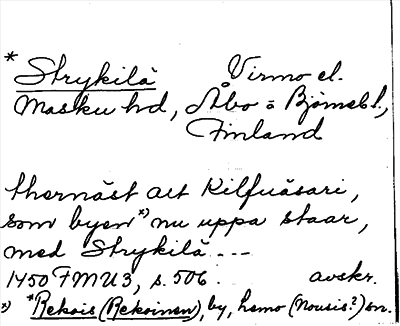 * Strykilä Virmo el.
Masku hd, Åbo o Björneb l.,
Finland
thernäst att Kilfuäsari,
som byen *) nu uppa staar,
med Strykilä ---
1450 FMU 3, s. 506. avskr.
*) *Rekois (Rekoinen), by, hemo (Nousis?) sn.